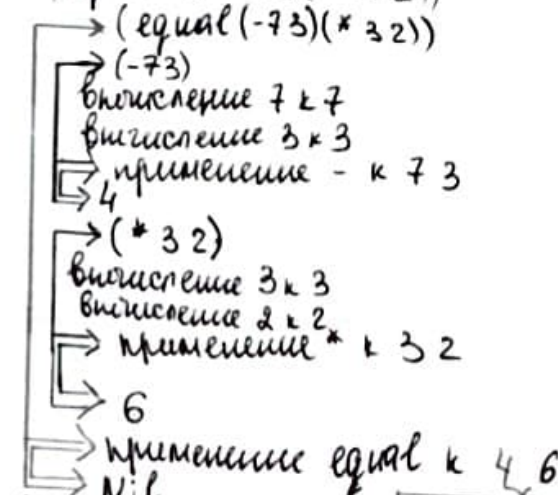 (equal (-7 3)(* 3 2))
(-7 3)
вычисление 7 к 7
вычисление 3 к 3
применение - к 7 3
4
(* 3 2)
вычисление 3 к 3
вычисление 2 к 2
применение * к 3 2
6
применение equal к 4 6
Nil